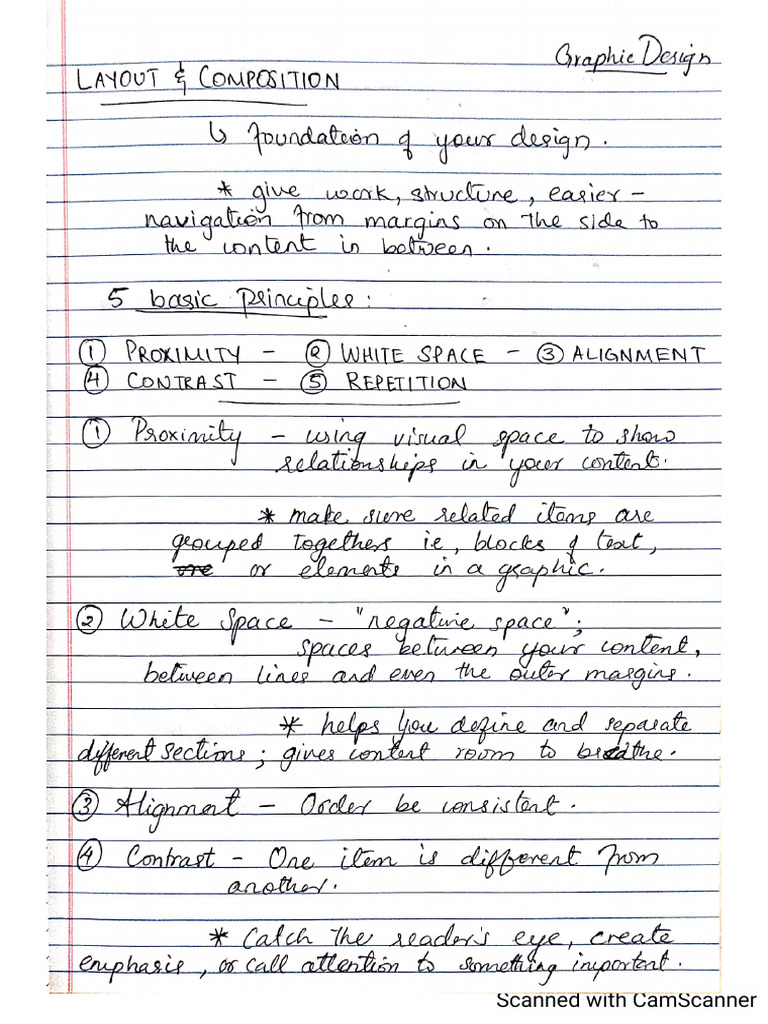 Graphic Design
LAYOUT & COMPOSITION
↳ foundation of your design.
* give work, structure, easier –
navigation from margins on the side to
the content in between.
5 basic principles:
① PROXIMITY – ② WHITE SPACE – ③ ALIGNMENT
④ CONTRAST – ⑤ REPETITION
① Proximity – using visual space to show
relationships in your content.
* make sure related items are
grouped togethers ie, blocks of text,
or elements in a graphic.
② White Space – "negative space";
spaces between your content,
between lines and even the outer margins.
* helps you define and separate
different sections; gives content room to breathe.
③ Alignment – Order be consistent.
④ Contrast – One item is different from
another.
* Catch the reader's eye, create
emphasis, or call attention to something important.
Scanned with CamScanner